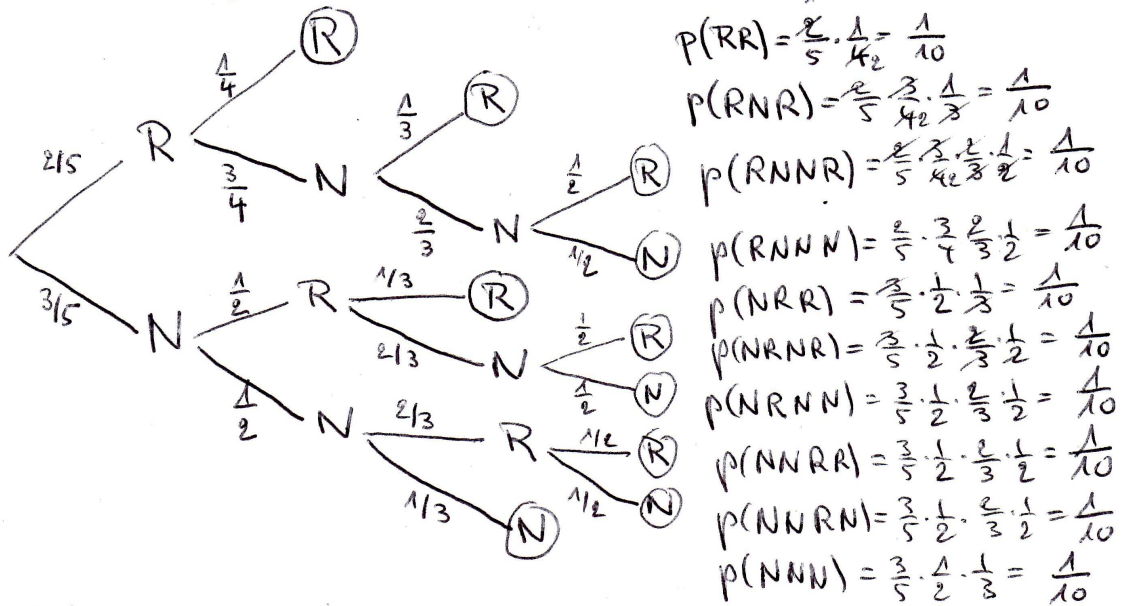 1/4 R
1/3 R
2/5 R
3/4 N
1/2 R
2/3 N
1/2 N
3/5 N
1/2 R
1/3 R
2/3 N
1/2 R
1/2 N
1/2 N
2/3 R
1/2 R
1/2 N
1/3 N
p(RR) = 2/5 · 1/4 2 = 1/10
p(RNR) = 2/5 · 3/4 2 · 1/3 = 1/10
p(RNNR) = 2/5 · 3/4 2 · 2/3 · 1/2 = 1/10
p(RNNN) = 2/5 · 3/4 2/3 · 1/2 = 1/10
p(NRR) = 3/5 · 1/2 · 1/3 = 1/10
p(NRNR) = 3/5 · 1/2 · 2/3 · 1/2 = 1/10
p(NRNN) = 3/5 · 1/2 · 2/3 · 1/2 = 1/10
p(NNRR) = 3/5 · 1/2 · 2/3 · 1/2 = 1/10
p(NNRN) = 3/5 · 1/2 · 2/3 · 1/2 = 1/10
p(NNN) = 3/5 · 1/2 · 1/3 = 1/10